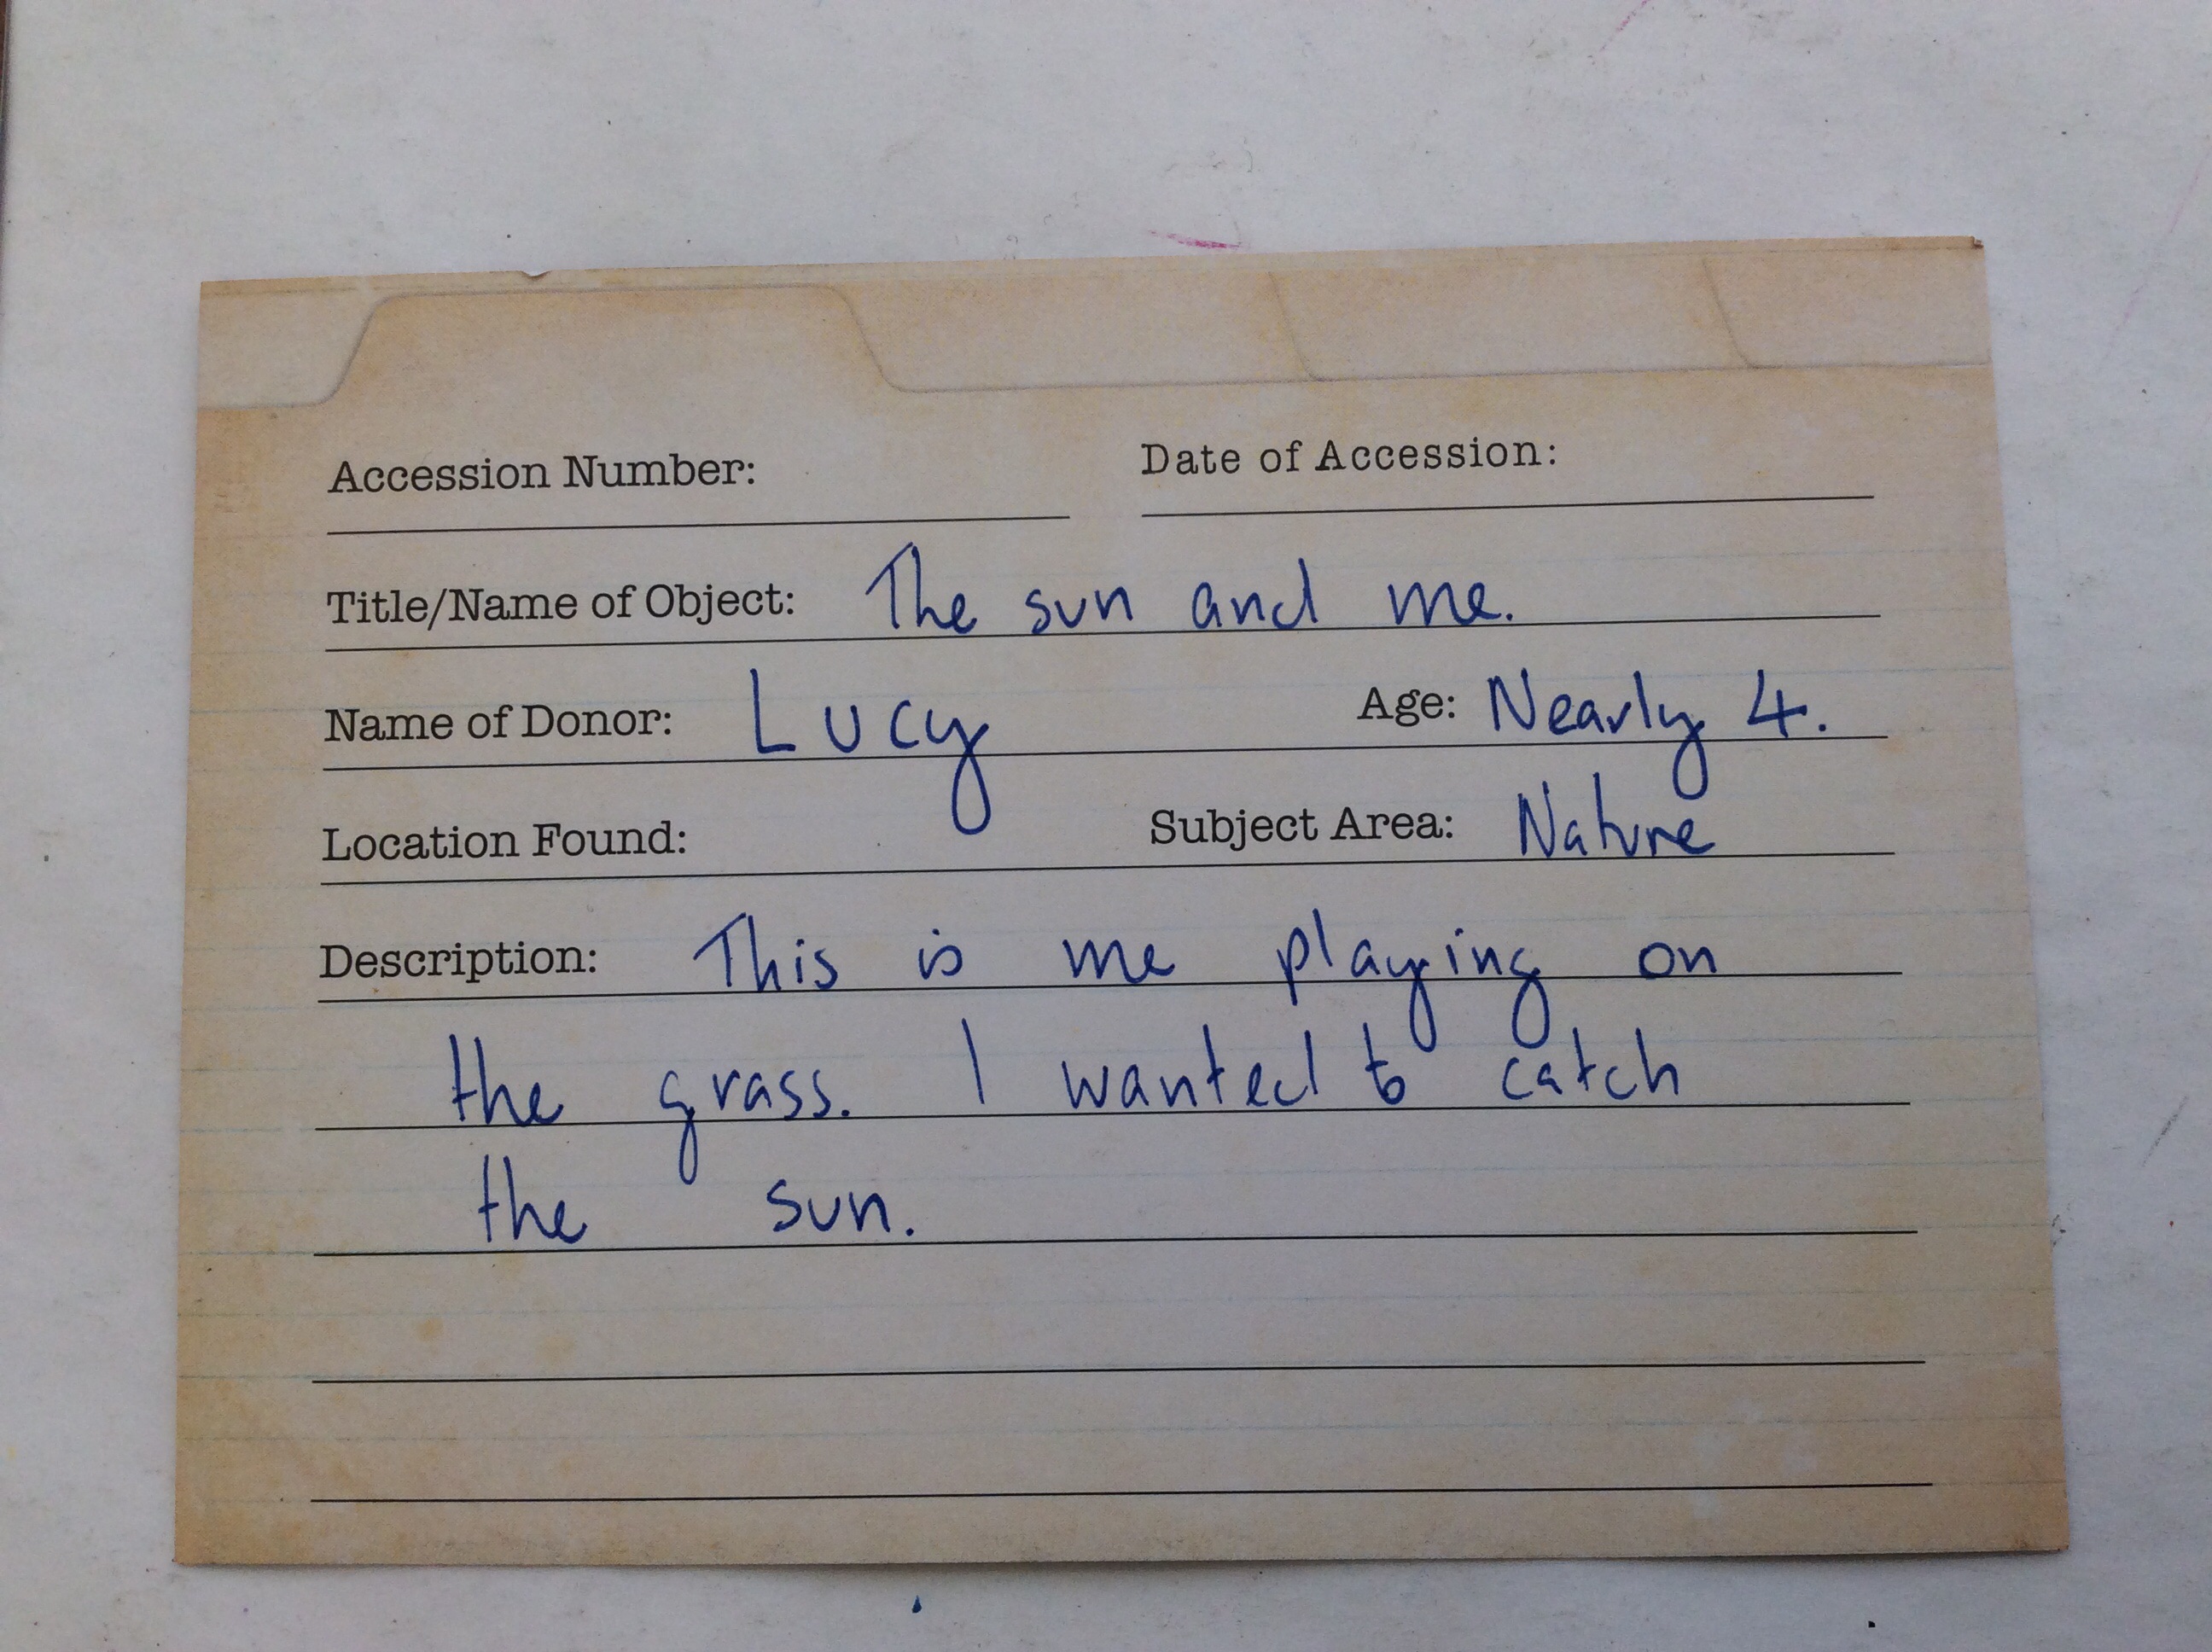 Accession Number: Date of Accession:
Title/Name of Object: The sun and me.
Name of Donor: Lucy Age: Nearly 4.
Location Found: Subject Area: Nature
Description: This is me playing on
the grass. I wanted to catch
the sun.